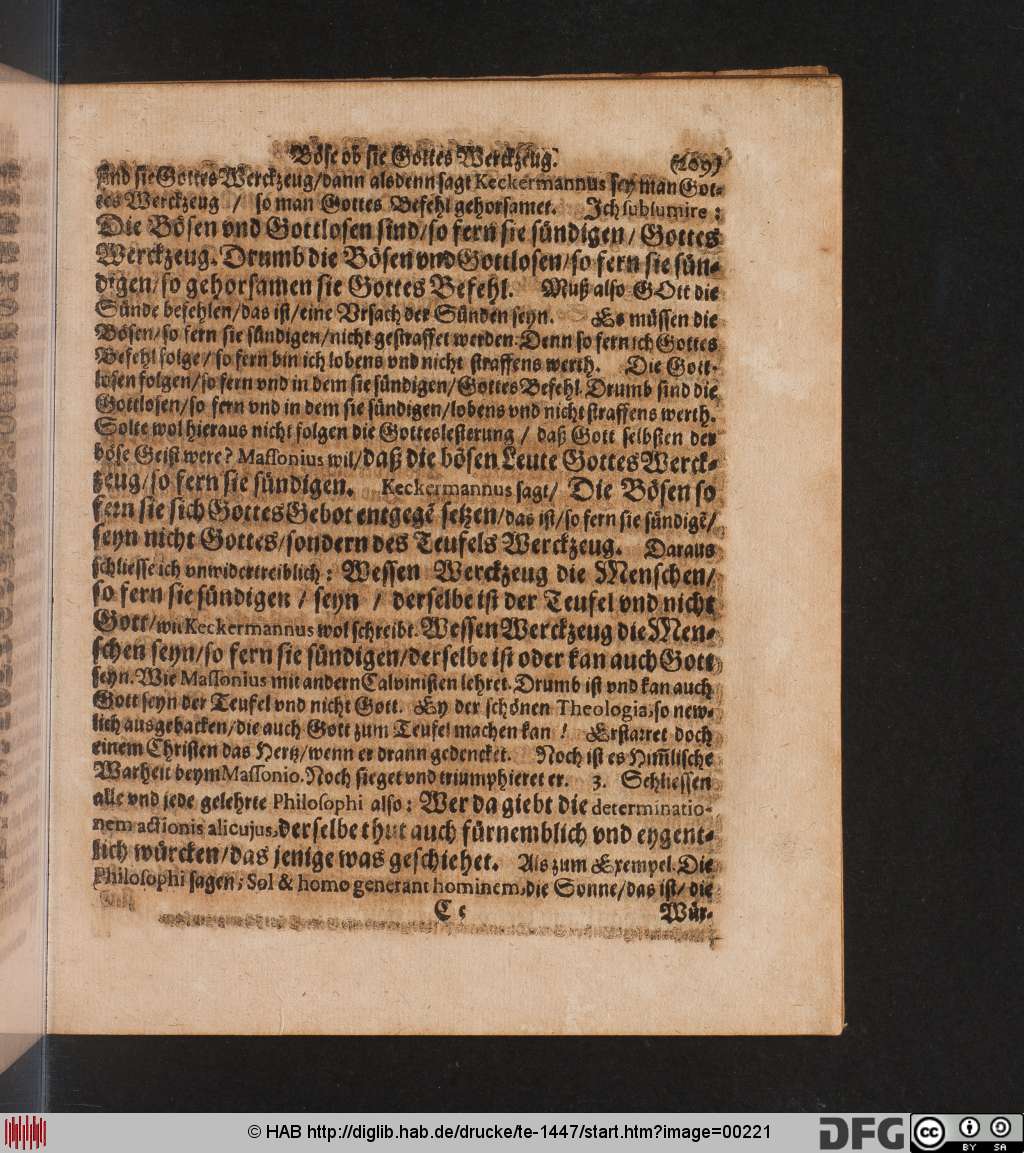 Böse ob sie Gottes Werckzeug. (209)
sind sie Gottes Werckzeug/dann alsdenn sagt Keckermannus sey man Got-
tes Werckzeug / so man Gottes Befehl gehorsamet. Ich subsumire:
Die Bösen vnd Gottlosen sind/so fern sie sündigen/ Gottes
Werckzeug. Drumb die Bösen vnd Gottlosen/so fern sie sün-
digen/so gehorsamen sie Gottes Befehl. Muß also GOtt die
Sünde befehlen/das ist/eine Vrsach der Sünden seyn. Es müssen die
Bösen/so fern sie sündigen/nicht gestraffet werden. Denn so fern ich Gottes
Befehl folge/so fern bin ich lobens vnd nicht straffens werth. Die Gott-
losen folgen/so fern vnd in dem sie sündigen/Gottes Befehl. Drumb sind die
Gottlosen/so fern vnd in dem sie sündigen/lobens vnd nicht straffens werth.
Solte wol hieraus nicht folgen die Gotteslesterung / daß Gott selbsten der
böse Geist were? Massonius wil/daß die bösen Leute Gottes Werck-
zeug/so fern sie sündigen. Keckermannus sagt/ Die Bösen so
fern sie sich Gottes Gebot entgegē setzen/das ist/so fern sie sündigē/
seyn nicht Gottes/sondern des Teufels Werckzeug. Daraus
schliesse ich vnwidertreiblich: Wessen Werckzeug die Menschen/
so fern sie sündigen / seyn / derselbe ist der Teufel vnd nicht
Gott/wie Keckermannus wol schreibt. Wessen Werckzeug die Men-
schen seyn/so fern sie sündigen/derselbe ist oder kan auch Gott
seyn. Wie Massonius mit andern Calvinisten lehret. Drumb ist vnd kan auch
Gott seyn der Teufel vnd nicht Gott. Ey der schönen Theologia, so new-
lich ausgebacken/die auch Gott zum Teufel machen kan! Erstarret doch
einem Christen das Hertz/wenn er dran gedencket. Noch ist es Him̄lische
Warheit beym Massonio. Noch sieget vnd triumphieret er. 3. Schliessen
alle vnd jede gelehrte Philosophi also: Wer da giebt die determinatio-
nem actionis alicujus, derselbe thut auch fürnemblich vnd eygent-
lich würcken/das jenige was geschiehet. Als zum Exempel. Die
Philosophi sagen; Sol & homo generant hominem, die Sonne/das ist/ die
C c Wür-
© HAB http://diglib.hab.de/drucke/te-1447/start.htm?image=00221
DFG cc BY SA